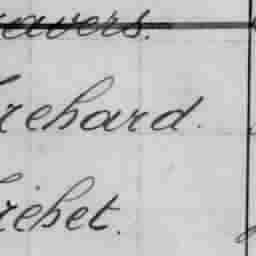 avers.
rehard.
réhet.